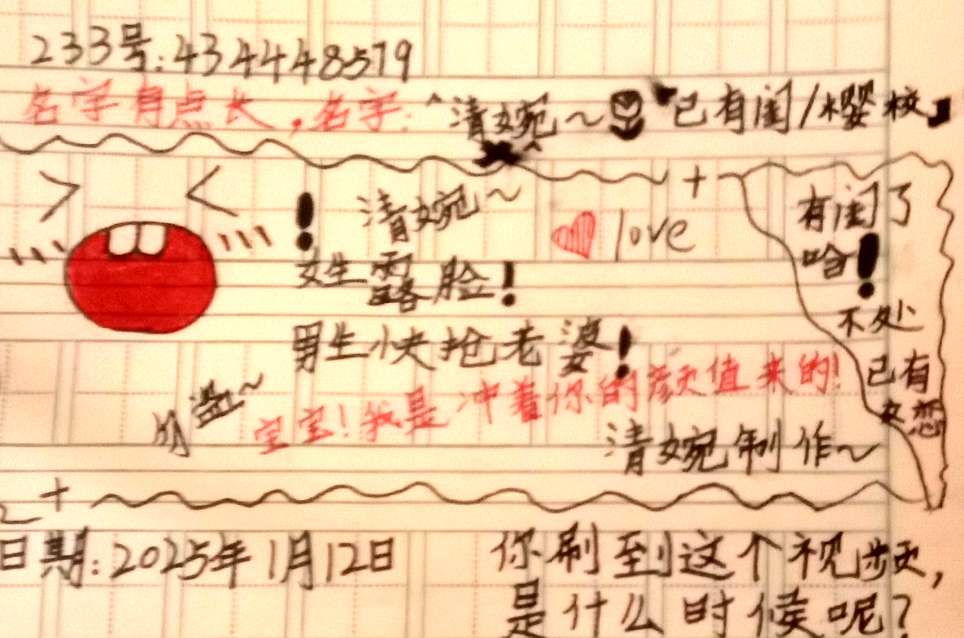 233号:434448579
名字有点长，名字:“清婉~已有闺/樱校」
清婉~
love
女生露脸!
男生快抢老婆!
勿盗~
宝宝!我是冲着你的颜值来的!
清婉制作~
有闺了
哈!
不处
已有
失恋
日期:2025年1月12日
你刷到这个视频,
是什么时候呢?